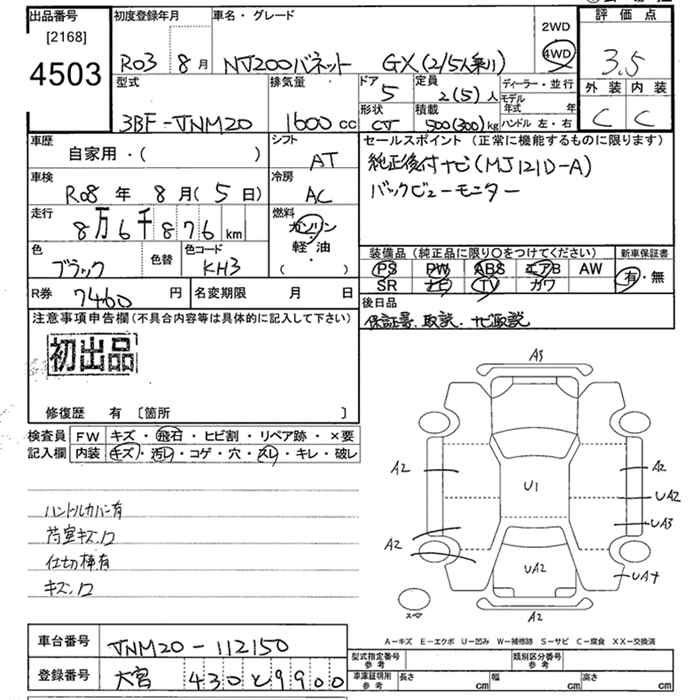 出品番号 初度登録年月 車名・グレード 評価点
[2168] 4503
R03 8月 NV200バネット GX(2/5人乗り) 2WD 4WD 3.5
型式 排気量 ドア 5 定員 2(5)人 ディーラー・並行 外装 内装
3BF-VNM20 1600cc 形状 CV 積載 500(300)kg モデル年式 年 ハンドル 左・右 C C
車歴 自家用・( ) シフト AT
セールスポイント(正常に機能するものに限ります)
純正後付ナビ(MJ121D-A)
バックビューモニター
車検 R08年 8月(5日) 冷房 AC
走行 8万6千876km 燃料 ガソリン・軽・油 ( )
色 ブラック 色替 色コード KH3
装備品(純正品に限り○をつけてください) 新車保証書
PS PW ABS エアB AW 有・無
SR ナビ TV カワ
R券 7460円 名変期限 月 日
後日品
保証書、取説、ナビ取説
注意事項申告欄(不具合内容等は具体的に記入して下さい)
初出品
修復歴 有 [箇所 ]
検査員記入欄 FW キズ・飛石・ヒビ割・リペア跡・×要
内装 キズ・汚レ・コゲ・穴・スレ・キレ・破レ
ハンドルカバー有
荷室キズ、ロ
仕切棒有
キズ、ロ
A3
A2 A2
U1 UA2
UA3
A2
UA2 UA4
A2
A-キズ E-エクボ U-凹み W-補修跡 S-サビ C-腐食 XX-交換済
車台番号 VNM20-112150
型式指定番号 参考 類別区分番号 参考
登録番号 大宮 430 と 9900
車庫証明用 参考 長さ cm 幅 cm 高さ cm